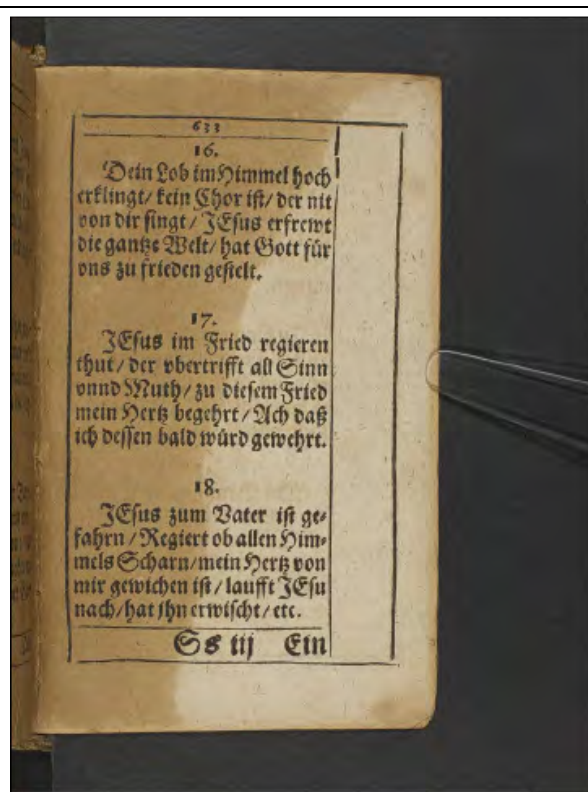 633
16.
Dein Lob im Himmel hoch
erklingt/ kein Chor ist/ der nit
von dir singt/ JEsus erfrewt
die gantze Welt/ hat Gott für
vns zu frieden gestelt.
17.
JEsus im Fried regieren
thut/ der vbertrifft all Sinn
vnnd Muth/ zu diesem Fried
mein Hertz begehrt/ Ach daß
ich dessen bald würd gewehrt.
18.
JEsus zum Vater ist ge-
fahrn/ Regiert ob allen Him-
mels Scharn/ mein Hertz von
mir gewichen ist/ laufft JEsu
nach/ hat jhn erwischt/ etc.
Ss iij Ein